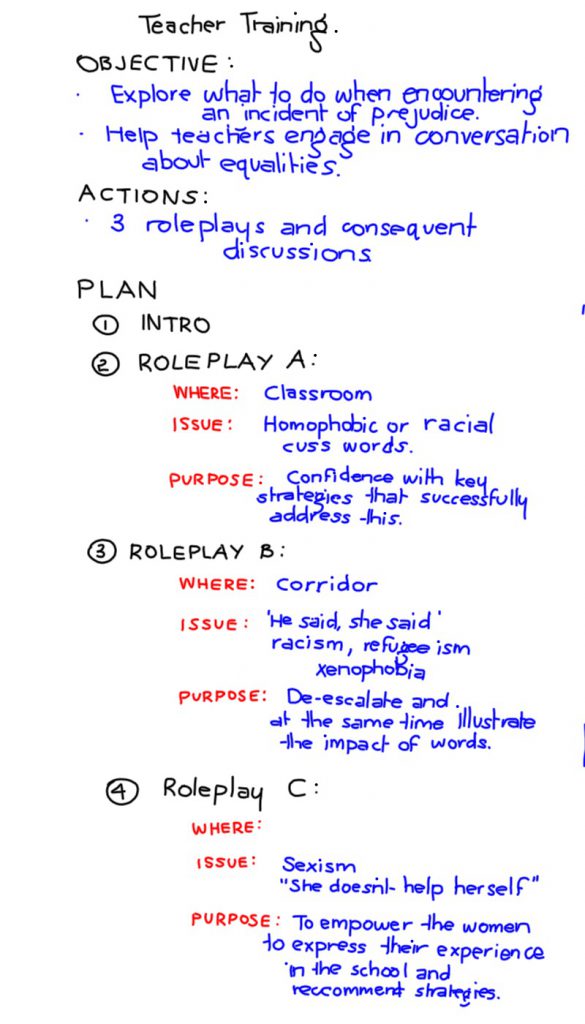 Teacher Training.
OBJECTIVE:
· Explore what to do when encountering
an incident of prejudice.
· Help teachers engage in conversation
about equalities.
ACTIONS:
· 3 roleplays and consequent
discussions
PLAN
① INTRO
② ROLEPLAY A:
WHERE: Classroom
ISSUE: Homophobic or racial
cuss words.
PURPOSE: Confidence with key
strategies that successfully
address this.
③ ROLEPLAY B:
WHERE: Corridor
ISSUE: 'He said, she said'
racism, refugee ism
xenophobia
PURPOSE: De-escalate and.
at the same time illustrate
the impact of words.
④ Roleplay C:
WHERE:
ISSUE: Sexism
"She doesn't help herself"
PURPOSE: To empower the women
to express their experience
in the school and
reccomment strategies.